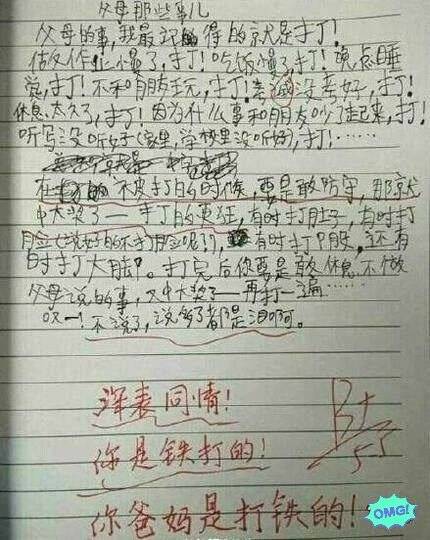 父母那些事儿
父母的事,我最记得的就是打!
做作业慢了,打!吃饭慢了,打!晚点睡
觉,打!不和朋友玩,打!考试没考好,打!
休息太久了,打!因为什么事和朋友吵了起来,打!
听写没听好(家里,学校里没听好),打!……
在 不皮打的时候,要是敢防守,那就
中大奖了——打的更狂,有时打肚子,有时打
脸(说好的不打脸呢?!),有时打P股,还有
时打大脑。打完后你要是敢休息不做
父母说的事,又中大奖了——再打一遍……
哎——!不说了,说多了都是泪啊。
深表同情!
你是铁打的!
你爸妈是打铁的!
B+
OMG!